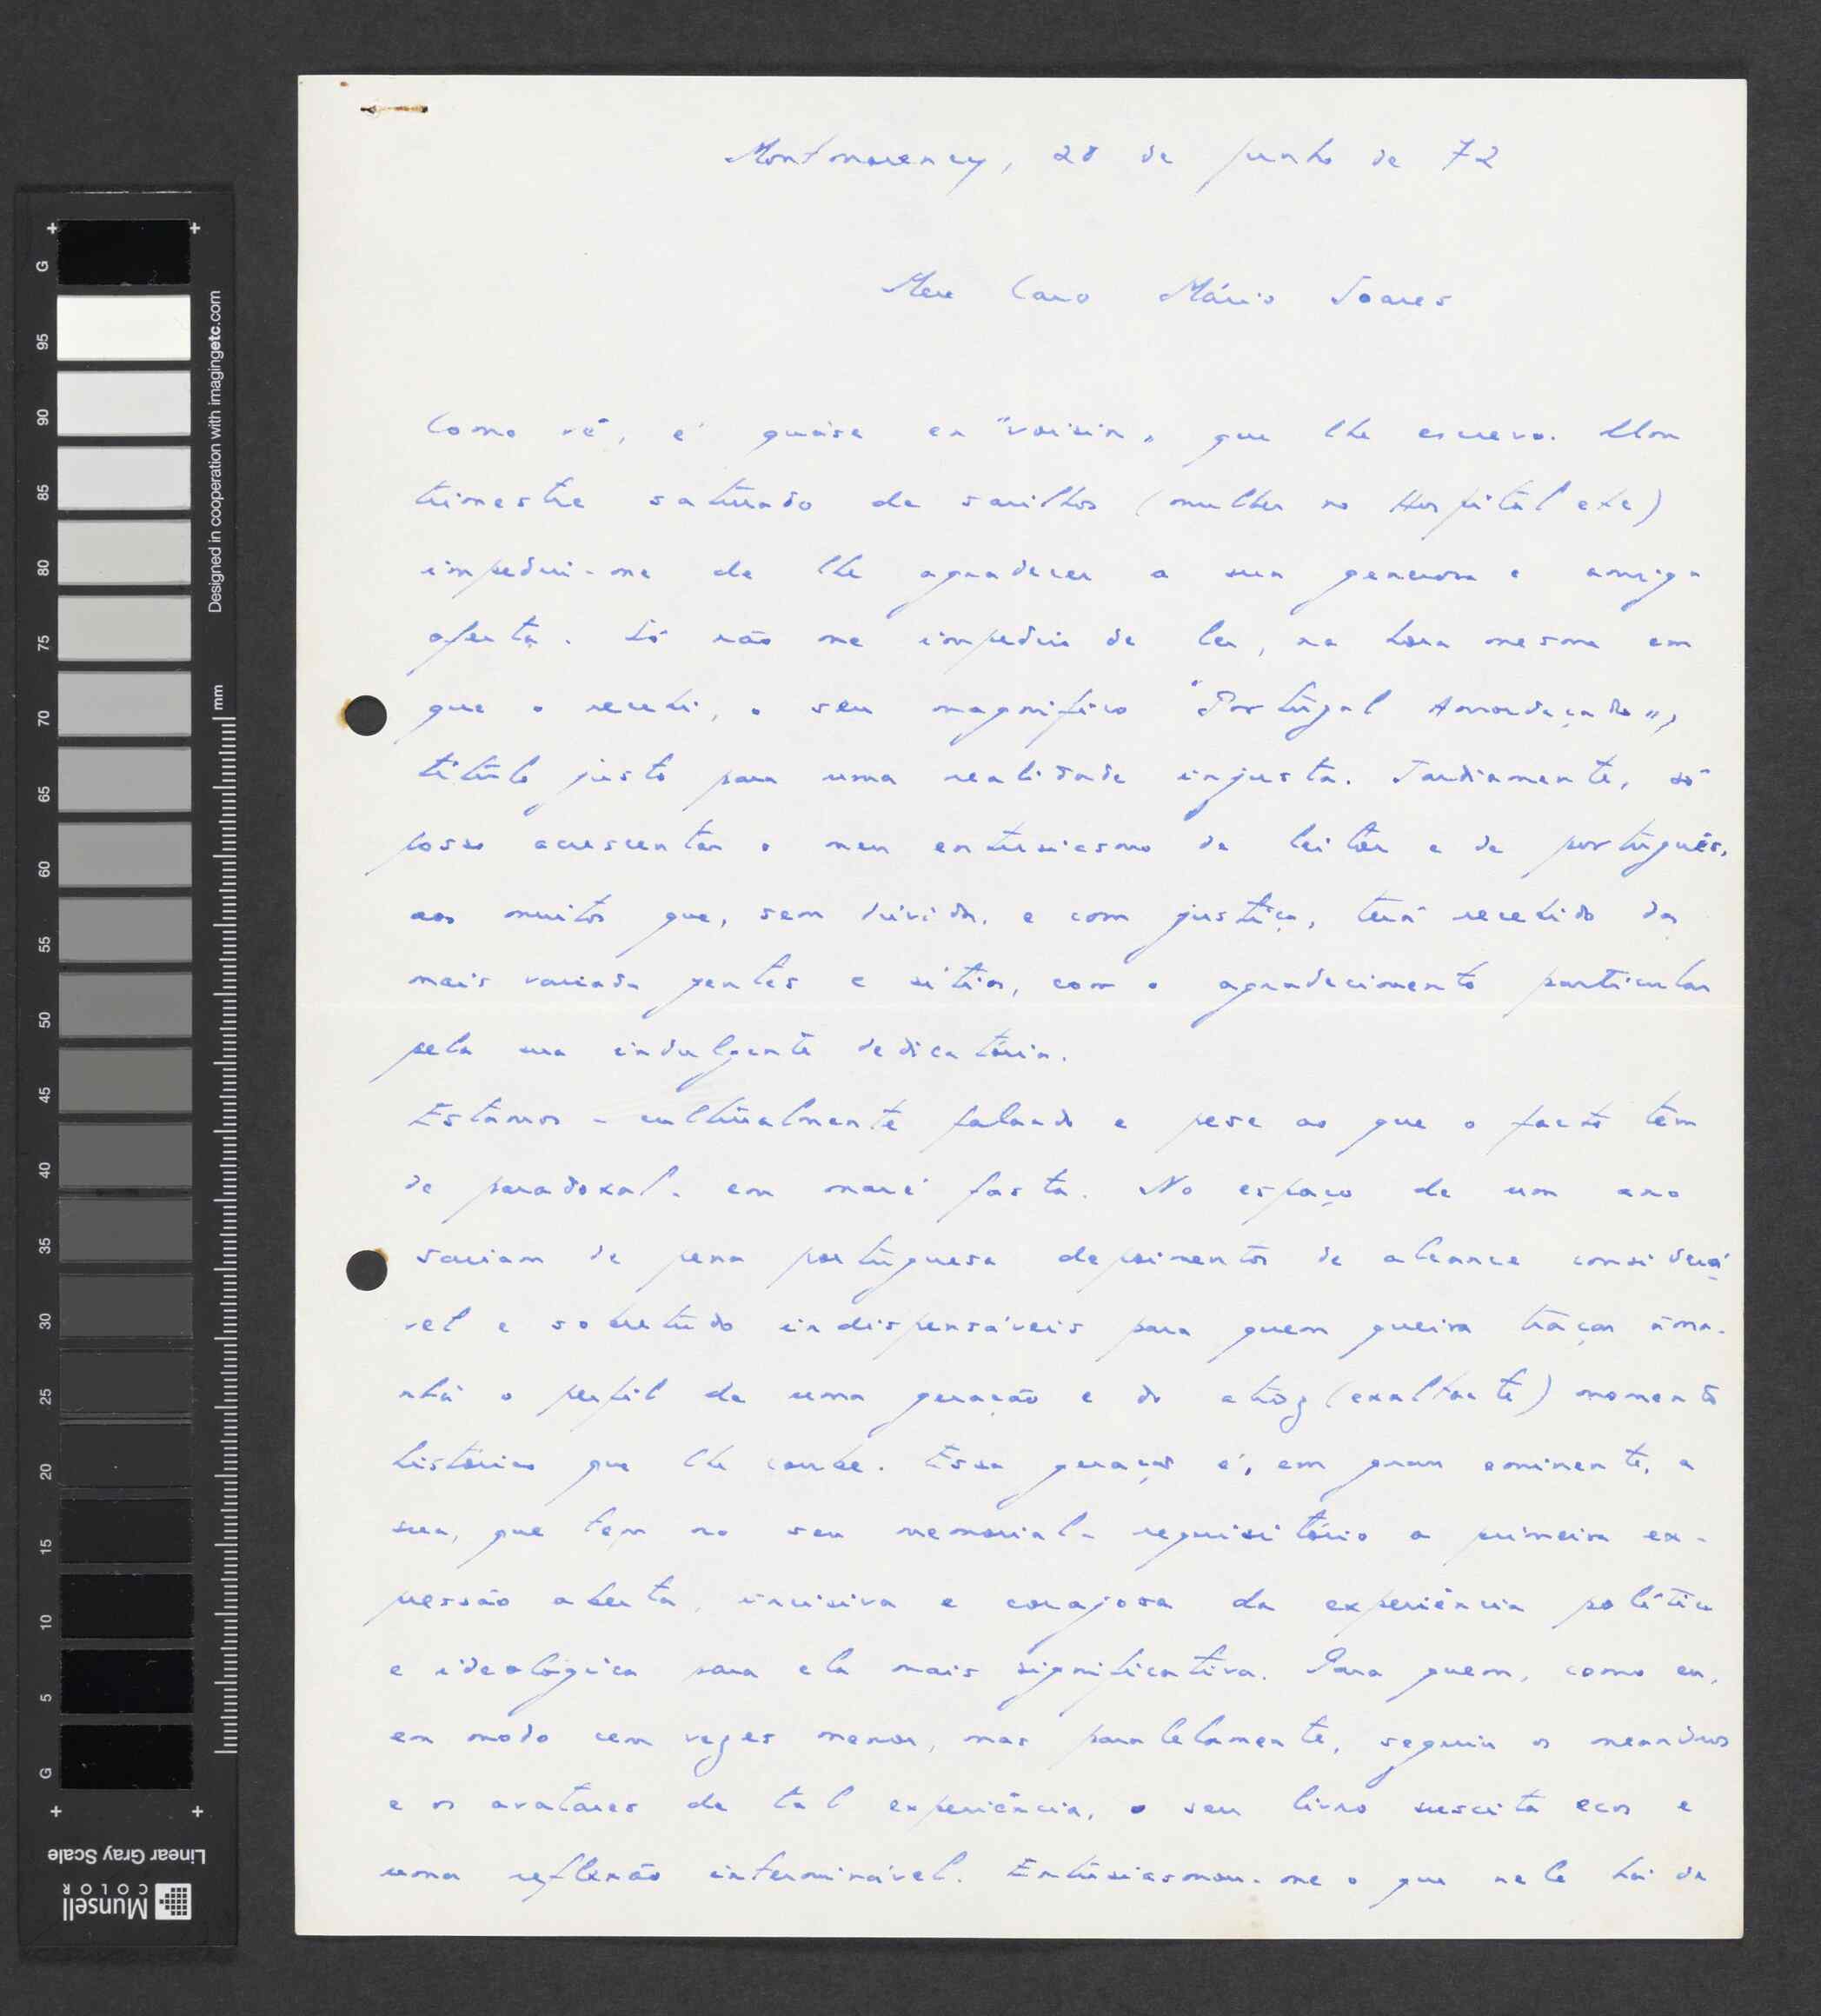 Montmorency, 28 de junho de 72
Meu Caro Mário Soares
Como vê, é quáse en "voisin" que lhe escrevo. Um
trimestre saturado de sarilhos (mulher no Hospital etc)
impediu-me de lhe agradecer a sua generosa e amiga
oferta. Só não me impediu de ler, na hora mesma em
que o recebi, o seu magnifico "Portugal Amordaçado",
título justo para uma realidade injusta. Tardiamente, só
posso acrescentar o meu entusiasmo de leitor e de português,
aos muitos que, sem dúvida, e com justiça, terá recebido das
mais variadas gentes e sítios, com o agradecimento particular
pela sua indulgente dedicatória.
Estamos - culturalmente falando e pese ao que o facto têm
de paradoxal - em maré fasta. No espaço de um ano
sairam de pena portuguesa depoimentos de alcance considerá
vel e sobretudo indispensáveis para quem queira traçar àma-
nhã o perfil de uma geração e do atroz (exaltante) momento
histórico que lhe coube. Essa geração é, em grau eminente, a
sua, que tem no seu memorial-requisitório a primeira ex-
pressão aberta, incisiva e corajosa da experiência política
e ideológica para ela mais significativa. Para quem, como eu,
em modo cem vezes menor, mas paralelamente, seguiu os meandros
e os avatares de tal experiência, o seu livro suscita ecos e
uma reflexão interminável. Entusiasmou-me o que nele há de
Designed in cooperation with imagingetc.com
mm
G
95
90
85
80
75
70
65
60
55
50
45
40
35
30
25
20
15
10
5
G
Linear Gray Scale
Munsell
COLOR